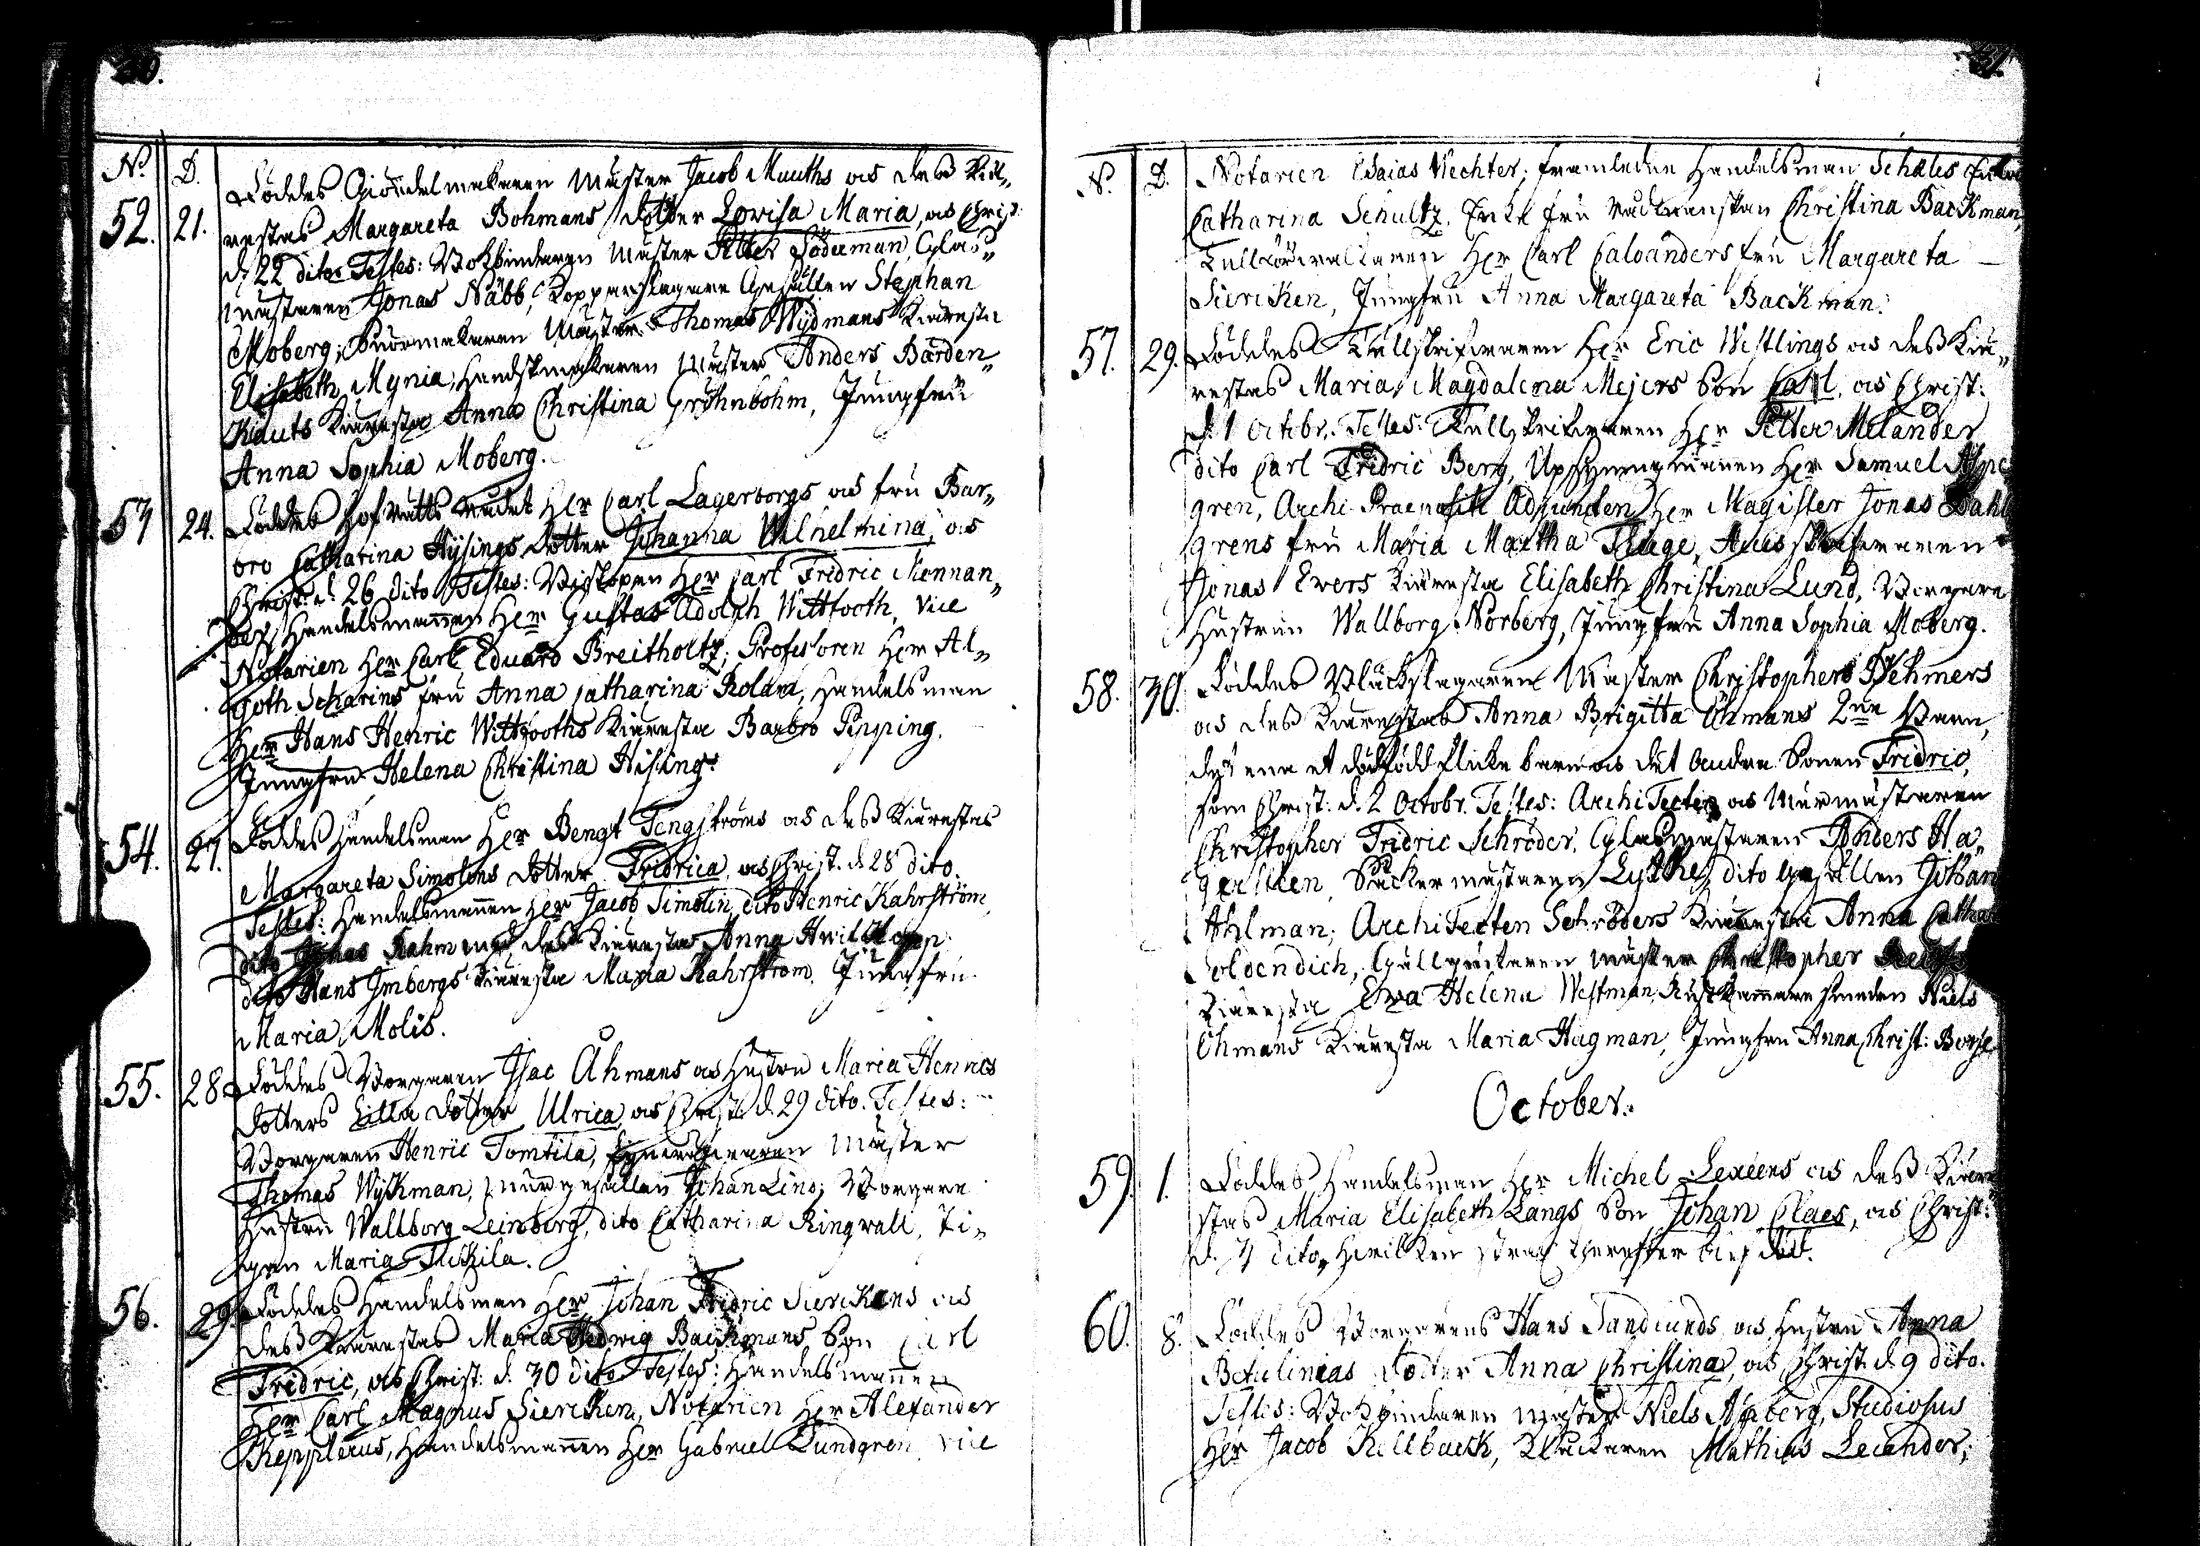 30.
N. D.
Föddes Giördelmakaren Mäster Jacob Muuths och dess Kiä„
52. 21. restas Margareta Bohmans dotter Lovisa Maria, och Christ:
d. 22 dito Testes: Bokbindaren Mäster Petter Söderman, Glas„
mästaren Jonas Näbb, Kopparslagare Gesällen Stephan
Moberg; Mäster Thomas Wydmans Kiäresta
Elisabeth Mynia, Handskmakaren Mäster Anders Barden„
Kiäresta Anna Christina Gröhnbohm, Jungfru
Anna Sophia Moberg.
53 24. Föddes Hof Rätts Rådet Herr Carl Lagerborgs och fru Bar„
bro Catharina Hijsings dotter Johanna Wilhelmina, och
Christ: d. 26 dito Testes: Biskopen Herr Carl Fridric Mennan„
der, Handelsmannen Herr Gustaf Adolph Wittfooth, Vice
Notarien Herr Carl Eduard Breitholtz, Professoren Herr Al„
goth Scharins fru Anna Catharina Rolan, Handelsman
Herr Hans Henric Wittfooths Kiäresta Barbro Pipping,
Jungfru Helena Christina Hising.
54. 27. Föddes Handelsman Herr Bengt Tengströms och dess Kiärestas
Margareta Simolins dotter Fridrica, och Christ. d. 28 dito.
Testes: Handelsmannen Herr Jacob Simolin, dito Henric Kahrström,
dito Rahm med dess Kiäresta Anna
dito Hans Imbergs Kiäresta Maria Kahrström, Jungfru
Maria Molis.
55. 28 Föddes Borgaren Isac Åhmans och Hustru Maria Henrics
dotters lilla dotter Ulrica, och Christ. d. 29 dito. Testes:
Borgaren Henric Tomtila, Mäster
Thomas Wykman, murgesällen Johan Lind; Borgare
Hustru Wallborg Leinberg, dito Catharina Ringwall, Pi„
gan Maria
56. 29 Föddes Handelsman Herr Johan Fridric Sierickens och
dess Kiärestas Maria Hedwig Backmans Son Carl
Fridric, och Christ: d. 30 dito Testes: Handelsmannen
Herr Carl Magnus Siericken, Notarien Herr Alexander
Kepplerus, Handelsmannen Herr Gabriel Lundgren, Vice
31.
N. D. Notarien Esaias Wechter, framledne Handelsman Schäles Enka
Catharina Schultz, Enke fru Rådmanskan Christina Backman,
Herr Carl Caloanders fru Margareta
Siericken, Jungfru Anna Margareta Backman.
57. 29. Föddes Tullskrifvaren Herr Eric Westlings och dess Kiä„
restas Maria Magdalena Mejers Son Carl, och Christ:
d. 1 Octobr. Testes: Tullskrifvaren Herr Petter Melander
dito Carl Fridric Berg, Upsyningsmannen Herr Samuel
gren, Archi-Praepositi Adjuncten Herr Magister Jonas Dahl
grens fru Maria Martha skrifvaren
Jonas Ewers Kiäresta Elisabeth Christina Lund, Borgare
Hustrun Wallborg Norberg, Jungfru Anna Sophia Moberg.
58. 30. Föddes Bläckslagaren Mäster Christophers
och dess Kiärestas Anna Brigitta Öhmans 2ne Barn,
det ena et dödfödd flicke barn och det andra Sonen Fridric,
som Christ: d. 2 Octobr. Testes: Architecten och Murmästaren
Christopher Fridric Schröder, Glasmästaren Anders Ha„
Såckermästaren Lythe, dito Gesällen Johan
Ahlman; Architecten Schröders Kiäresta Anna Catha
Mäster Christopher
Kiäresta Ewa Helena Westman, Niels
Öhmans Kiäresta Maria Hagman, Jungfru Anna Christ:
October.
59. 1. Föddes Handelsman Herr Michel Lexéens och dess Kiäre
stas Maria Elisabeth Langs Son Johan Claes, och Christ:
d. 3 dito, Hvilken strax therefter blef död.
60. 8. Föddes Borgarens Hans Sandlunds och Hustru Anna
Betulinias dotter Anna Christina, och Christ. d. 9 dito.
Testes: Bokbindaren Mäster Niels Asberg, Studiosus
Herr Jacob Kellback, Klockaren Mathias Lecander,